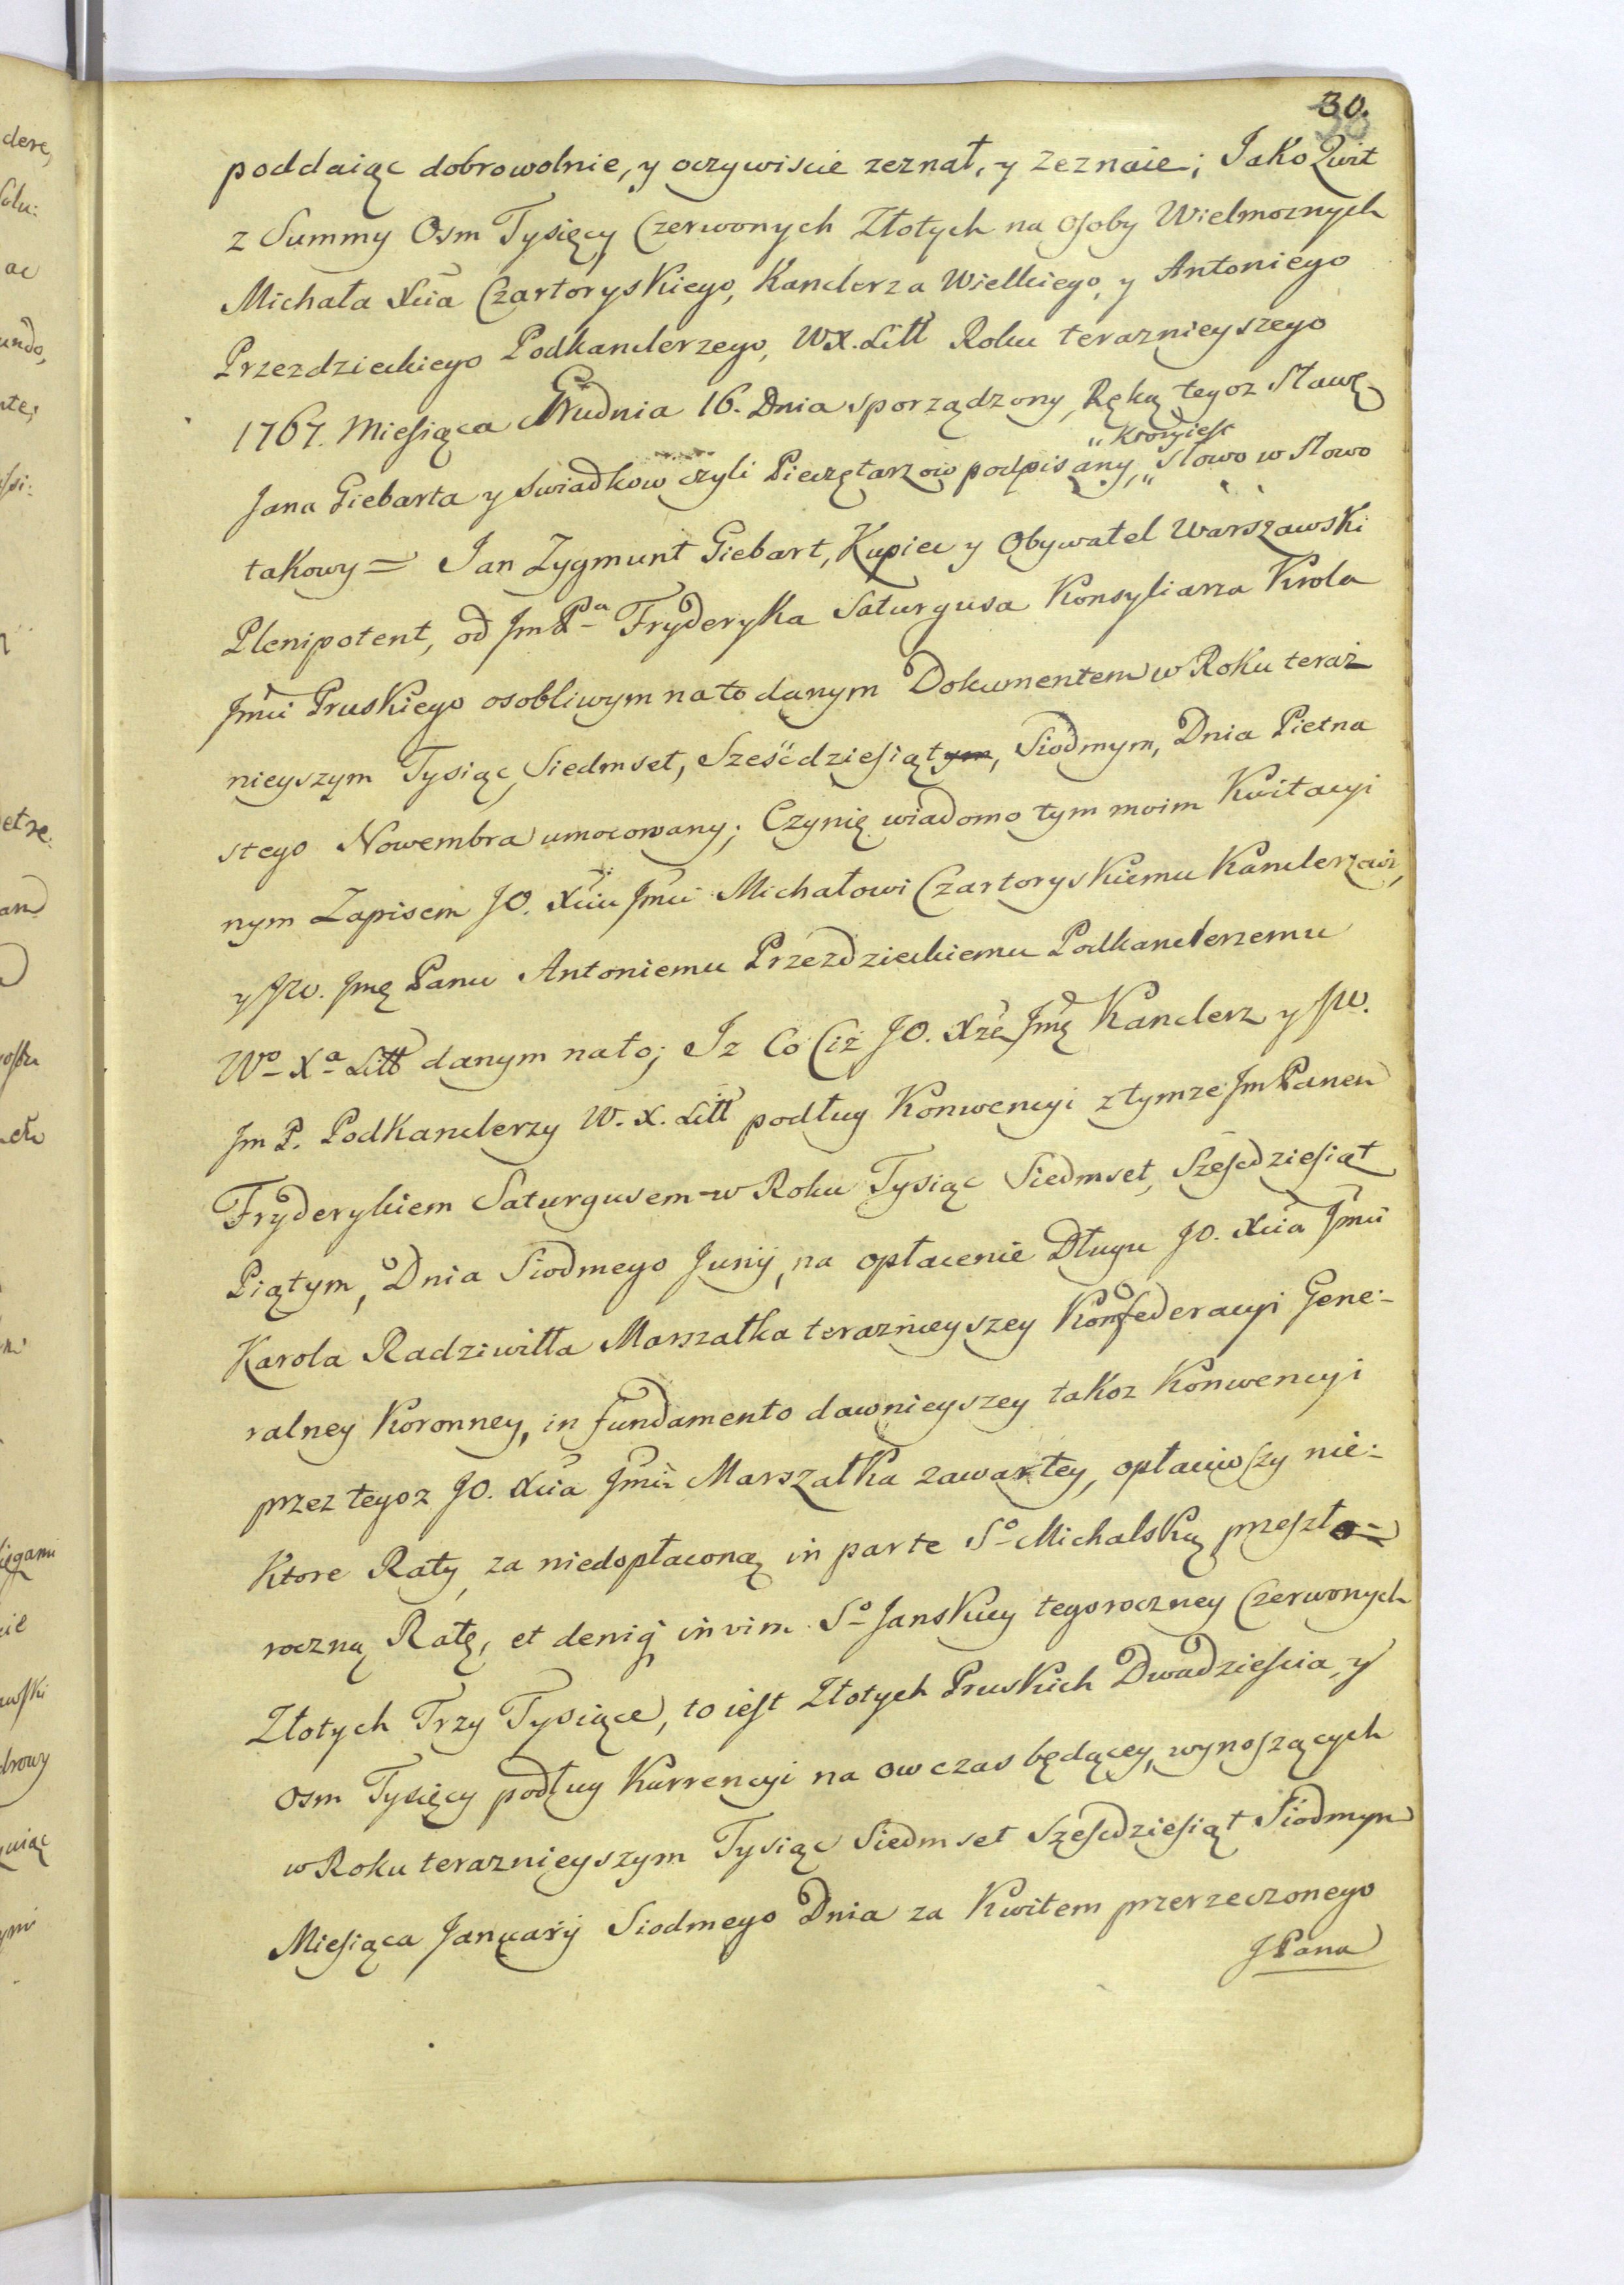 30.
poddaiąc dobrowolnie, y oczywiscie zeznał, y zeznaie; Jako Qwit
z Summy Osm Tysięcy Czerwonych Złotych na Osoby Wielmoznych
Michała Xcia Czartoryskiego, Kanclerza Wielkiego, y Antoniego
Przezdzieckiego Podkanclerzego, W.X. Litt Roku teraznieyszego
1767. Miesiąca Grudnia 16. Dnia sporządzony, Ręką tegoz Sławę.
Jana Giebarta y swiadkow czyli Pieczętarzow podpisany, "Ktory iest" Słowo w Słowo
takowy = Jan Zygmunt Giebart, Kupiec y Obywatel Warszawski
Plenipotent, od Jm Pa Fryderyka Saturgusa Konsyliarza Krola
Jmci Pruskiego osobliwym na to danym Dokumentem w Roku teraz
nieyszym Tysiąc Siedmset, Sześćdziesiątym, Siodmym, Dnia Pietna
stego Nowembra umocowany; Czynię wiadomo tym moim Kwitacyi
nym Zapisem JO. Xciu Jmci Michałowi Czartoryskiemu Kanclerzowi,
y JW. Jmę Panu Antoniemu Przezdzieckiemu Podkanclerzemu
Wo Xa Litt danym na to; Iz Co Ciż JO. Xże Jmę Kanclerz y JW.
Jm P. Podkanclerzy W. X. Litt podług Konwencyi z tymze Jm Panem
Fryderykiem Saturgusem w Roku Tysiąc Siedmset, Szescdziesiąt
Piątym, Dnia Siodmego Junÿ, na opłacenie Długu JO. Xcia Jmci
Karola Radziwiłła Marszałka teraznieyszey Konfederacyi Gene:
ralney Koronney, in fundamento dawnieyszey takoz Konwencyi
przez tegoz JO. Xcia Jmci Marszałka zawartey, opłaciwszy nie:
ktore Raty, za niedopłaconą in parte So Michalską przeszło-
roczną Ratę, et deniq in vim So Janskiey tegoroczney Czerwonych
Złotych Trzy Tysiące, to iest Złotych Pruskich Dwadziescia, y
osm Tysięcy podług Kurrencyi na ow czas będącey, wynoszących
w Roku teraznieyszym Tysiąc Siedmset Szescdziesiąt Siodmym
Miesiąca Januarÿ Siodmego Dnia za Kwitem przerzeczonego
JPana